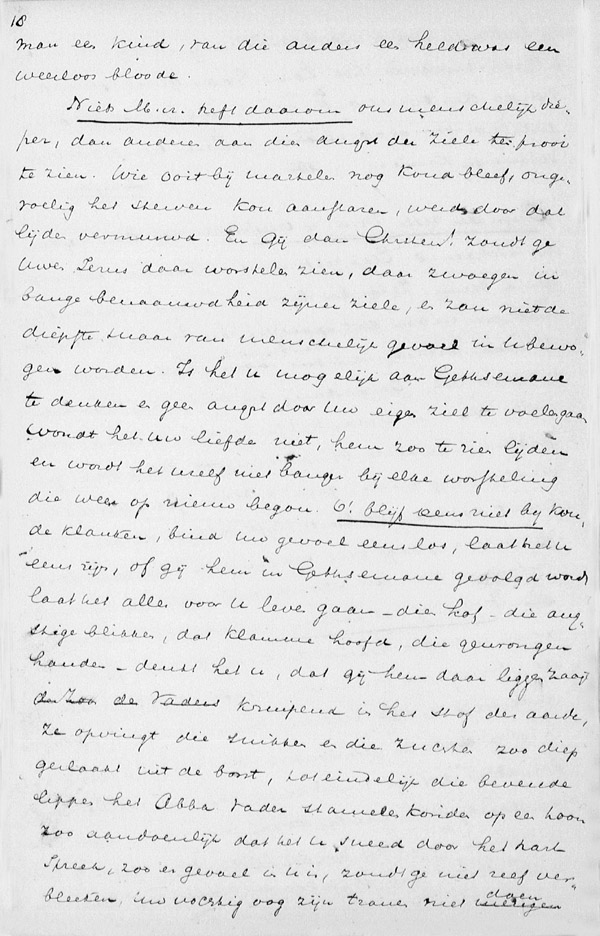 18
man een kind, van die anders een held was een
weerloos bloode.
Niets M.vr. heft daarom ons menschelijk die-
per, dan anderen aan dien angst der ziele ten prooi
te zien. Wie ooit bij martelen nog koud bleef, onge-
voelig het sterven kon aanstaren, werd door dat
lijden vermurwd. En Gij dan Christen! zoudt ge
Uwen Jezus daar worstelen zien, daar zwoegen in
bange benaauwdheid zijner ziele, en zou niet de
diepste snaar van menschelijk gevoel in U bewo-
gen worden. Is het u mogelijk aan Gethsemané
te denken en geen angst door Uw eigen ziel te voelen gaan
wondt het Uw liefde niet, hem zoo te zien lijden
en wordt het U reef niet banger bij elke worsteling
die weer op nieuw begon. O! blijf eens niet bij kou-
de klanken, bind uw gevoel eens los, laat het u
eens zijn, of gij hem in Gethsemané gevolgd waart
laat het alles voor U leven gaan – dien hof – die ang-
stige blikken, dat klamme hoofd, die gewrongen
handen – denkt het u, dat gij hem daar liggen zaagt
de Zoon des Vaders krimpend in het stof der aarde,
ze opvingt die snikken en die zuchten zoo diep
geslaakt uit de borst, tot eindelijk die bevende
lippen het Abba Vader stamelen konden op een toon
zoo aandoenlijk dat het u sneed door het hart
Spreek, zoo er gevoel in U is, zoudt ge niet reef ver-
bleeken, Uw vochtig oog zijn tranen niet mengen
doen